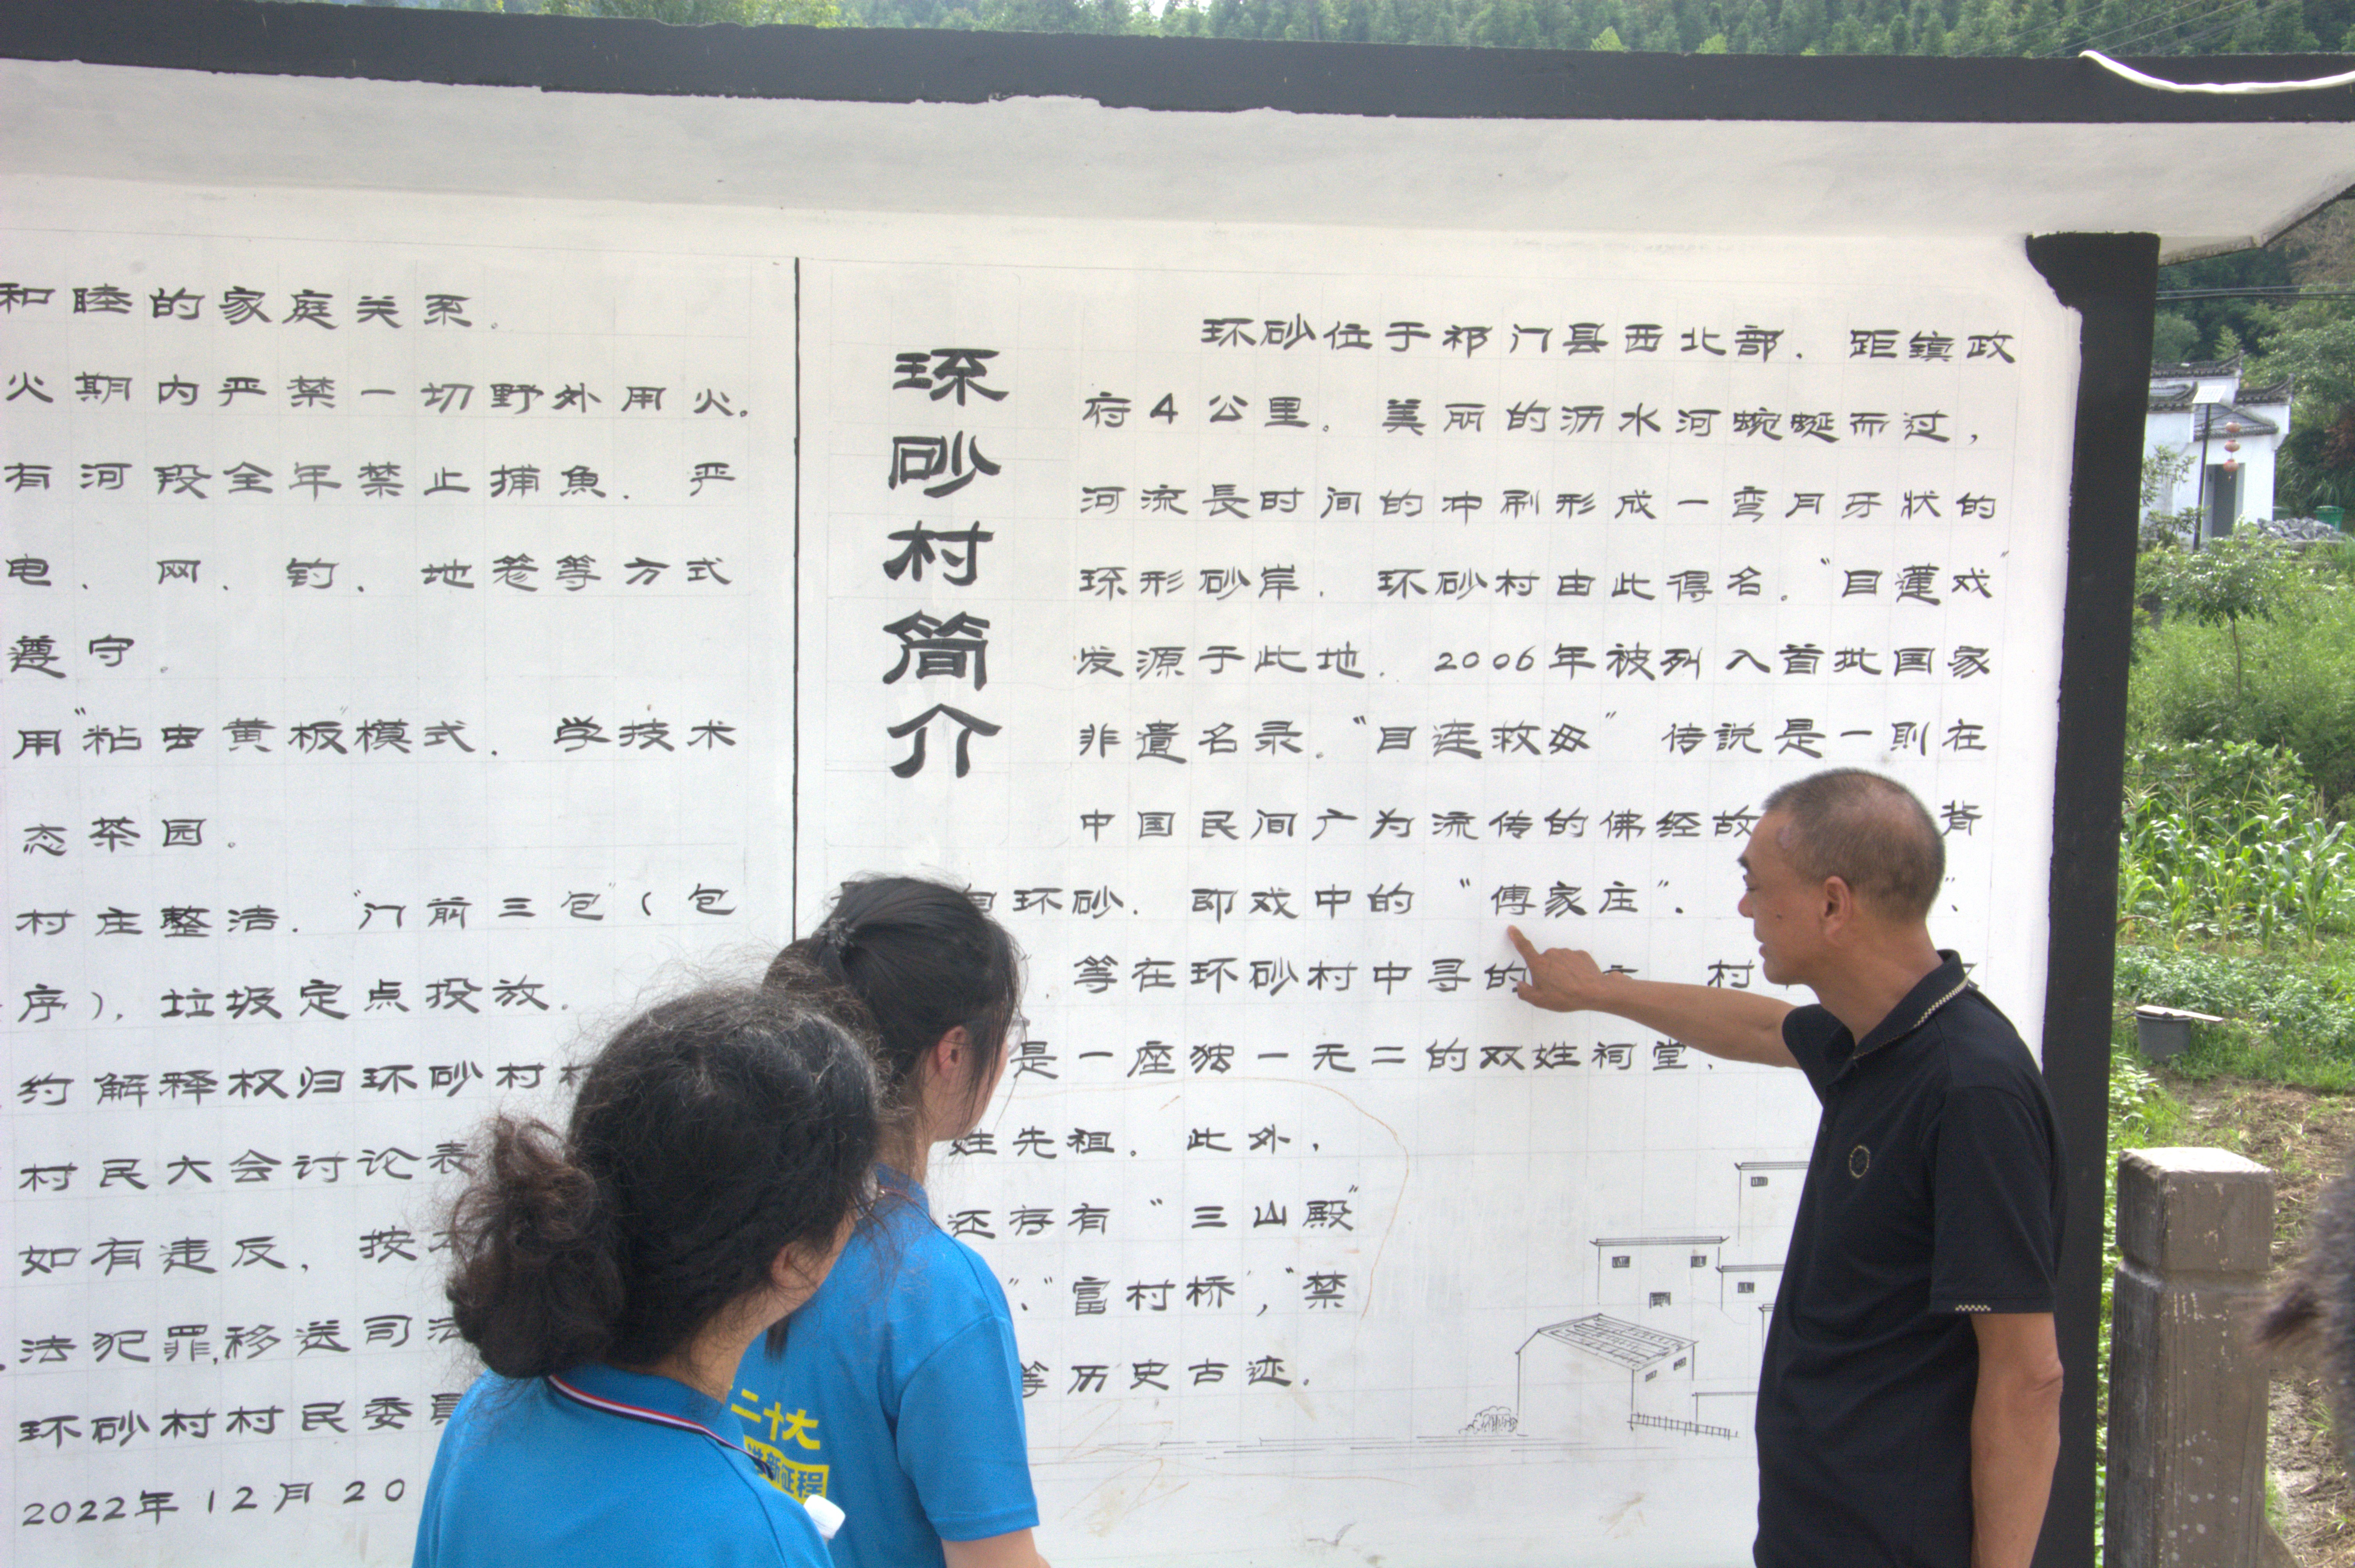 和睦的家庭关系。
火期内严禁一切野外用火。
有河段全年禁止捕魚．严
电．网．钓．地笼等方式
遵守。
用“粘虫黄板”模式．学技术
态茶园。
村庄整洁．“门前三包”（包
序）．垃圾定点投放．
约解释权归环砂村
村民大会讨论表
如有违反，按
法犯罪，移送司法
环砂村村民委員
2022年12月20
环砂村简介
环砂位于祁门县西北部．距镇政
府4公里．美丽的沥水河蜿蜒而过，
河流長时间的冲刷形成一弯月牙状的
环形砂岸．环砂村由此得名．“目蓮戏”
发源于此地．2006年被列入首批国家
非遺名录．“目连救母”传説是一則在
中国民间广为流传的佛经故 背
自环砂．即戏中的“傅家庄”．
等在环砂村中寻的 村
是一座独一无二的双姓祠堂．
姓先祖．此外，
还存有“三山殿”
“富村桥”，“禁
等历史古迹．
二十大
新征程